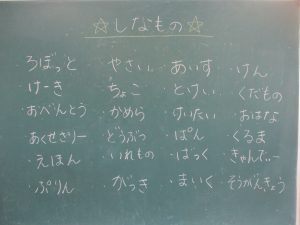 ☆しなもの☆
・ろぼっと ・やさい ・あいす ・けん
・けーき ・ちょこ ・とけい ・くだもの
・おべんとう ・かめら ・けいたい ・おはな
・あくせさりー ・どうぶつ ・ぱん ・くるま
・えほん ・いれもの ・ばっく ・きゃんでぃー
・ぷりん ・がっき ・まいく ・そうがんきょう